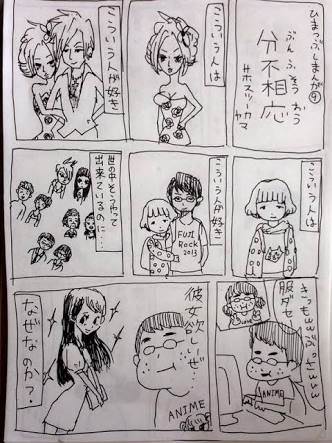 ひまつぶしまんが④
ぶんふそうおう
分不相応
#ホスツーカヤマ
こういう人は
こういう人が好き
こういう人は
こういう人が好き
FUJI
Rock
2013
世の中そうやって
出来ているのに…
きっもwwぶっさwww
服ダセ
ANIME
彼女欲しいぜ
ANIME
なぜなのか?